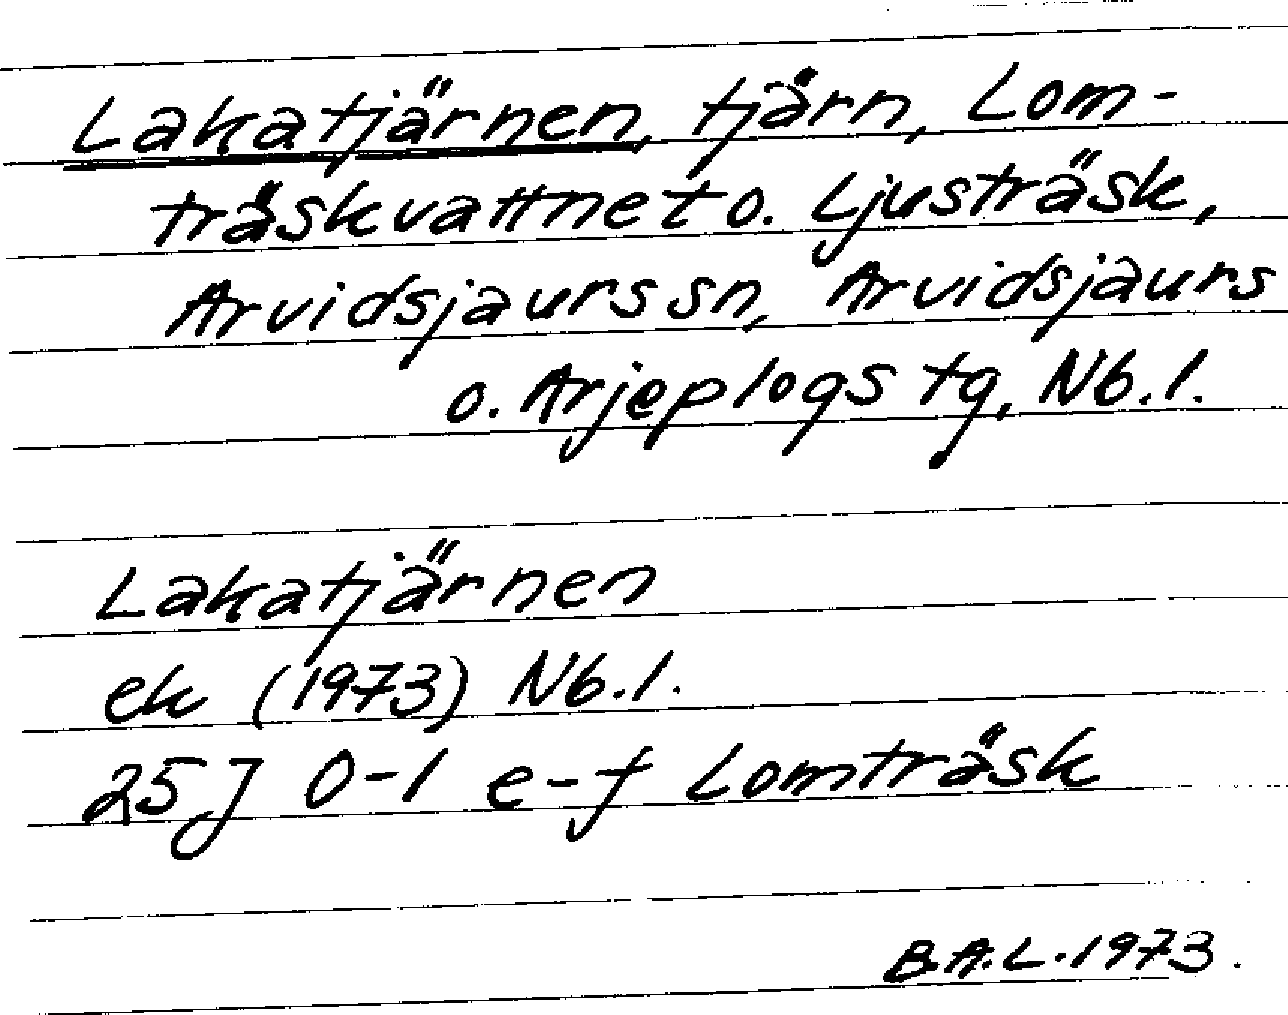 Lakatjärnen, tjärn, Lom-
träskvattnet o. Ljusträsk,
Arvidsjaurs sn, Arvidsjaurs
o. Arjeplogs tg, Nb. l.
Lakatjärnen
ek (1973) Nb. l.
25J 0-1 e-f Lomträsk
B.A.L. 1973.